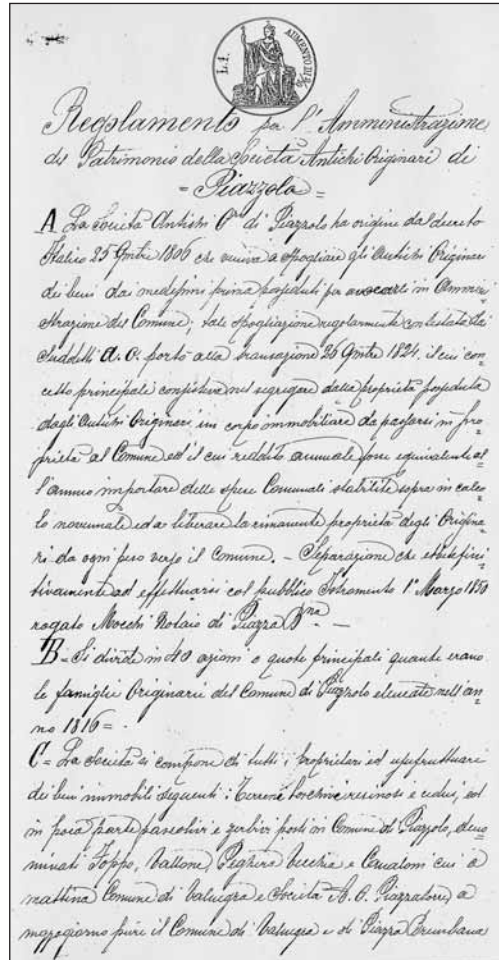 L. 1. AUMENTO DI 2/10
Regolamento per l'Amministrazione
del Patrimonio della Società Antichi Originari di
= Piazzolo =
A La Società Antichi O.ri di Piazzolo ha origine dal decreto
Italico 25 9mbre 1806 che veniva a spogliare gli Antichi Originari
dei beni dai medesimi prima posseduti per avocarli in Ammini
strazione del Comune; tale spogliazione regolarmente contestata dai
suddetti A. O. portò alla transazione 26 9mbre 1824, il cui con
cetto principale consisteva nel segregare dalla proprietà posseduta
dagli Antichi Originari, un corpo immobiliare da passarsi in pro=
prietà al Comune ed il cui reddito annuale fosse equivalente al
l'annuo importare delle spese Comunali stabilite sopra in calco=
lo novennale ed a liberare la rimanente proprietà degli Origina=
ri da ogni peso verso il Comune. – Separazione che ebbe defini=
tivamente ad effettuarsi col pubblico Istromento 1° Marzo 1850
rogato Mocchi Notaio di Piazza B.na –
B = Si divide in 40 azioni o quote principali quante erano
le famiglie Originarie del Comune di Piazzolo elencate nell'an=
no 1816 =
C = La Società si compone di tutti i proprietari ed usufruttuari
dei beni immobili seguenti: Terreni boschivi resinosi e cedui, ed
in poca parte pascolivi e zerbivi posti in Comune di Piazzolo, deno
minati Foppo, Vallone, Peghera Vecchia e cui a
mattina Comune di Valnegra e Società A. O. Piazzatorre, a
mezzogiorno pure il Comune di Valnegra e di Piazza Brembana